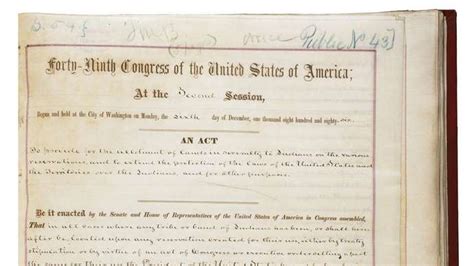 Public No 43]
Forty-Ninth Congress of the United States of America;
At the Second Session,
Begun and held at the City of Washington on Monday, the sixth day of December, one thousand eight hundred and eighty-six.
AN ACT
To provide for the allotment of lands in severalty to Indians on the various
reservations, and to extend the protection of the laws of the United States and
the Territories over the Indians, and for other purposes.
Be it enacted by the Senate and House of Representatives of the United States of America in Congress assembled,
That in all cases where any tribe or band of Indians has been, or shall here-
after be, located upon any reservation created for their use, either by treaty
stipulation or by virtue of an act of Congress or executive order setting apart
the same for their use, the President of the United States